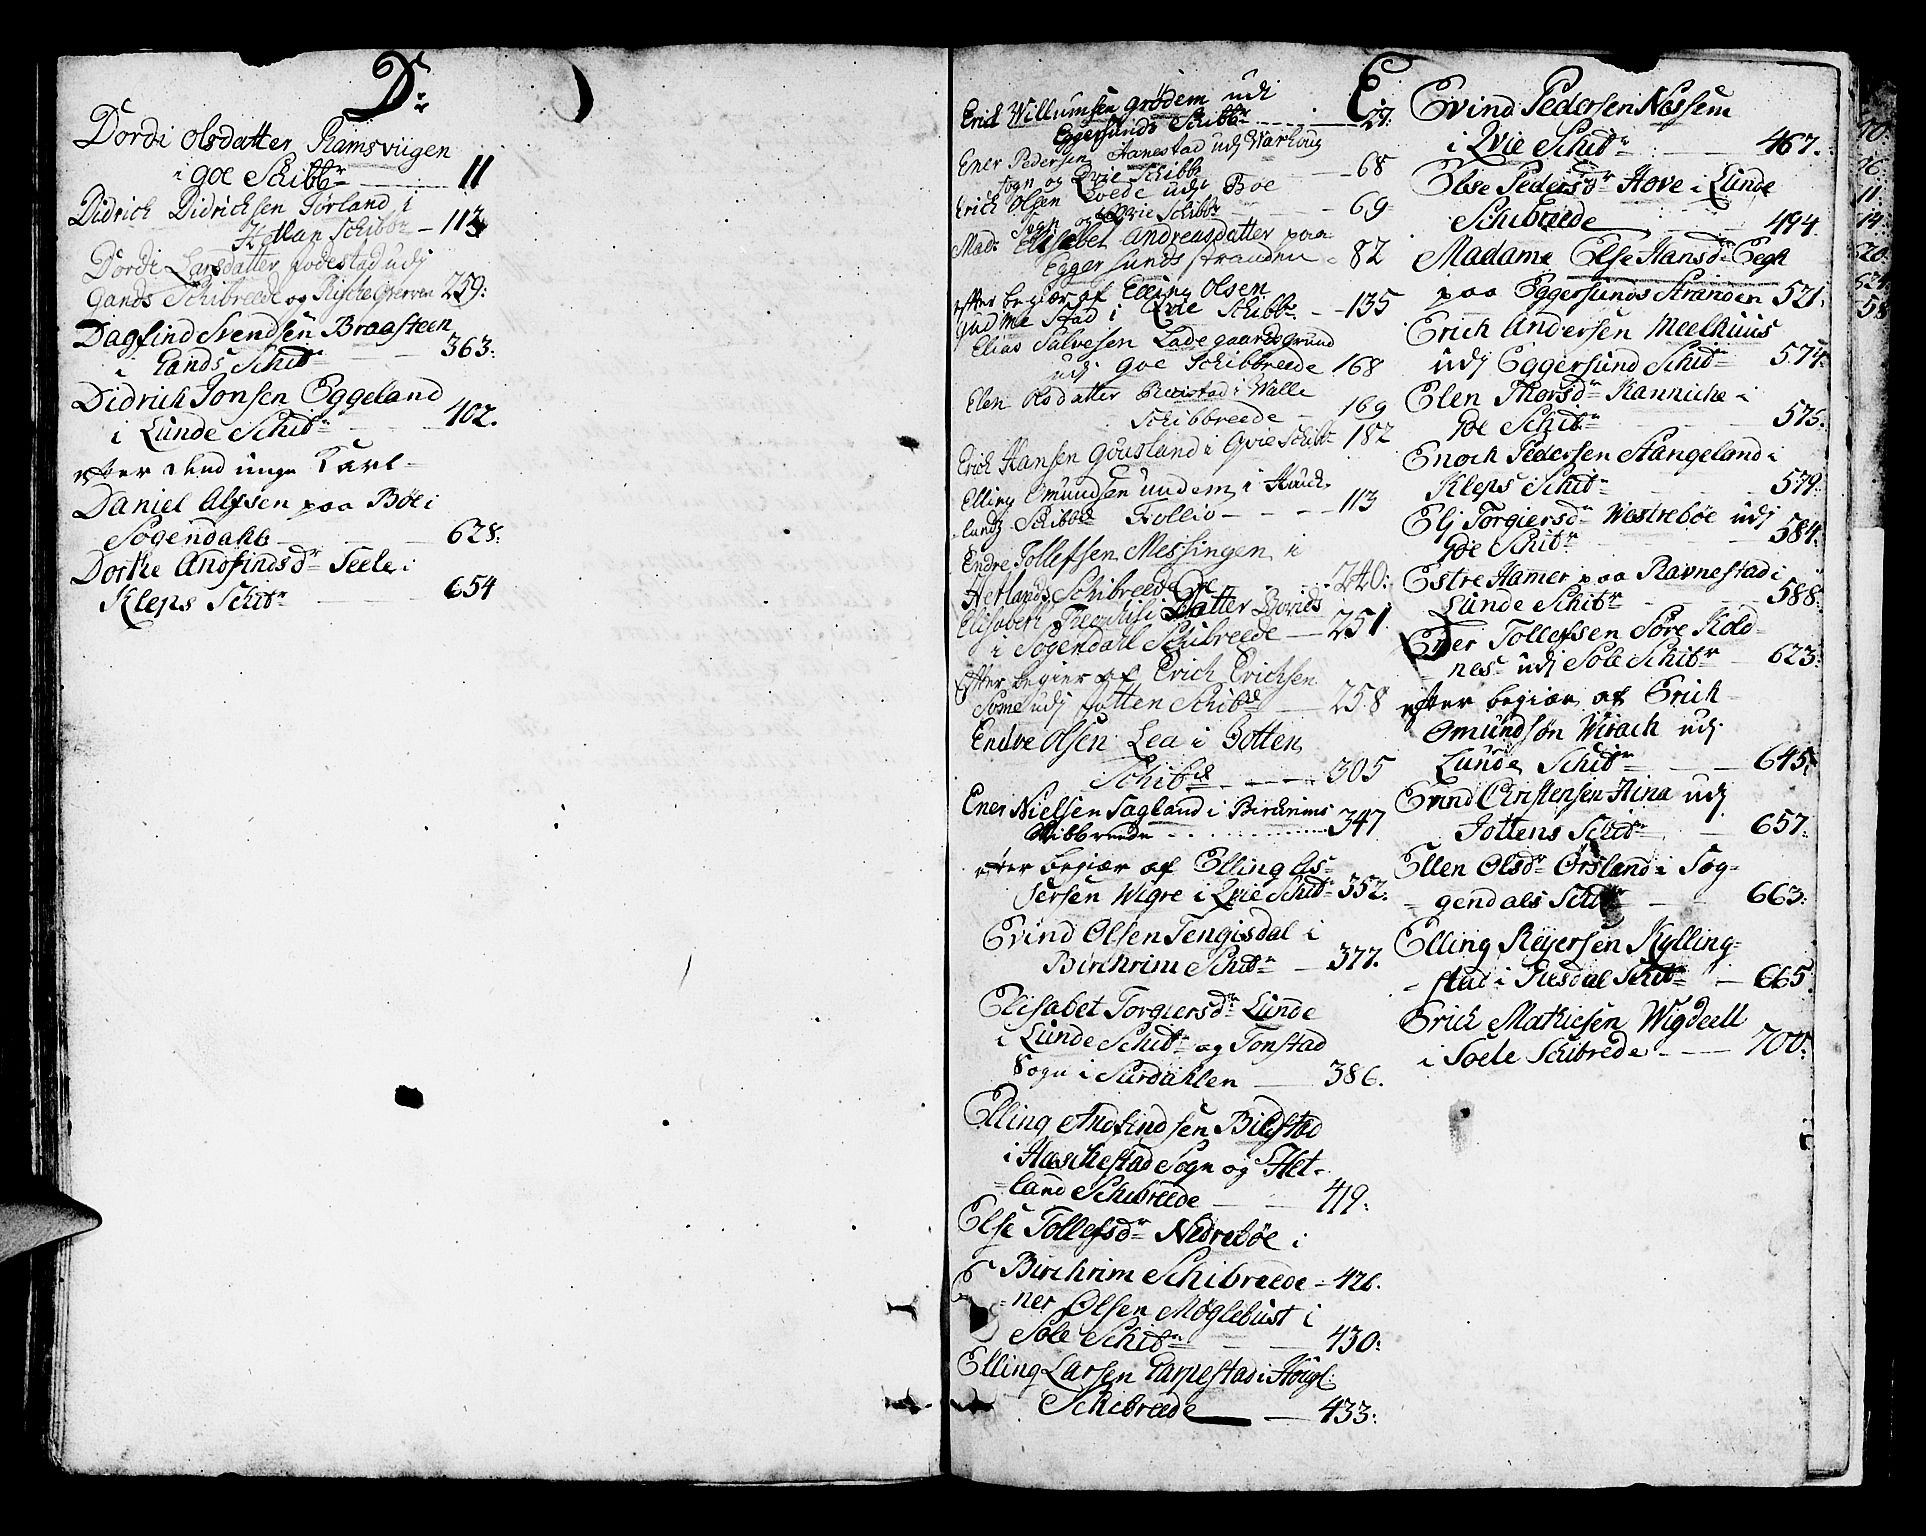 D:
Dordi Olsdatter Ramsviigen
i goe Schibbr 11
Didrich Didrichsen Tørland i
Schibbr 113
Dordi Larsdatter Jodestad udj
Gands Schibreede og Rische Grerven 259:
Dagfind Svendsen Braasteen
i Gands Schibr 363:
Didrich Jonsen Eggeland
i Lunde Schibr 402.
efter dend unge Karl
Daniel Alfsen paa Bøe i
Sogendahls 628:
Dorthe Andfindsdr Seele i
Kleps Schibr 654
E
Erich Willumsen grødem udi
Eggersunds Schibbr 27:
Ener Pedersen Hanestad udj Warhoug
Sogn og Qvie Schibbr 68
Erich Olsen Qvede udj Bøe
Sogn og Qvie Schibbr 69
Mads Elisabet Andreasdatter paa
Eggersunds stranden 82
efter begiær af Elling Olsen
i Qvie Schibbr 135
Elias Salvesen Ladegaards grund
udj goe Schibbreede 168
Elen Olsdatter i Walle
Schibbreede 169
Erich Hansen gousland i Qvie Schibbr 182
Elling Omundsen undem i Houch
landz Schibbr Follio 113
Endre Tollefsen Messingen i
Hetlands Schibreede 240:
Elisabeth Datter
i Sogendall Schibreede 251
Efter begier af Erich Erichsen
Some udj Jotten Schibrd 258
Endre Olsen Lea i Jotten
Schibrd 305
Ener Nielsen Sagland i Birchrims
Skibbreede 347
efter begiær af Elling As-
sersen Wigre i Qvie Schibr 352:
Evind Olsen Tengisdal i
Birchrim Schibr 377.
Elisabet Torgiersdr Lunde
i Lunde Schibr og Tonstad
Sogn i Siirdahlen 386.
Elling Andfindsen Bilstad
i Haschestad Sogn og Het-
land Schibreede 419:
Else Tollefsdr Nedrebøe i
Birchrim Schibreede 426.
Ener Olsen Møglebust i
Sole Schibr 430:
Elling Larsen Garpestad i Høugl:
Schibreede 433:
Evind Pedersen Nassem
i Qvie Schibr 467.
Else Pedersdr Hove i Lunde
Schibreede 494.
Madame Else Hansdr Eegh
paa Eggersunds Stranden 521.
Erich Andersen Meelhuus
udj Eggersund Schibr 574
Elen Thorsdr Kanniche i
goe Schibr 575:
Enoch Pedersen Stangeland i
Kleps Schibr 579:
Elj Torgiersdr Westrebøe udj
goe Schibr 584:
Estre Hamer paa Ravnestad i
Lunde Schibr 588:
Ener Tollefsen Søre Kold-
nes udj Sole Schibr 623:
efter begiær af Erich
Omundsøn Wirach udj
Lunde Schibr 645:
Evind Christensen Hina udj
Jottens Schibr 657:
Ellen Olsdr Ørsland i Sog-
gendals Schibr 663:
Elling Reyersen Kylling-
stad i Giesdal Schibr 665.
Erich Mathiesen Wigdeell
i Soele Schibrede 700: